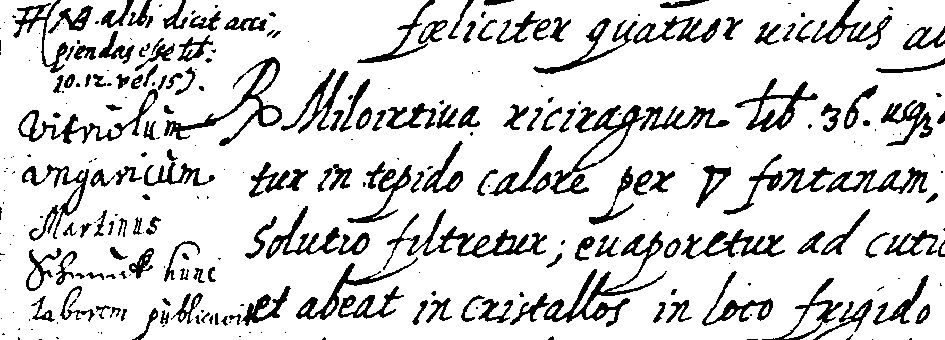 #(NB alibi dicit acci„
piendas esse lib:
10. 12. vel. 15).
Vitriolum
ungaricum
Martinus
Schmuck hunc
Laborem publicavit
fœliciter quatuor vicibus
℞ Miloirtiua riciragnum lib. 36.
tur in tepido calore per ▽ fontanam,
Solutio filtretur; euaporetur ad
et abeat in cristallos in loco frigido